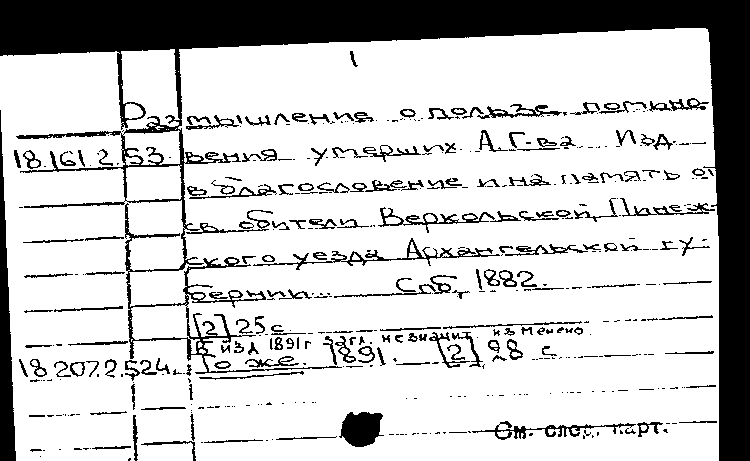 1
Размышление о пользе помино-
18.161.2.53. вения умерших А. Г-ва Изд.
в благословение и на память от
св. обители Веркольской, Пинеж-
ского уезда Архангельской гу-
бернии... Спб, 1882.
[2] 25 с
В изд 1891г загл. незначит. изменено
18.207.2.524. То же. 1891. [2] 28 с
См. след. карт.